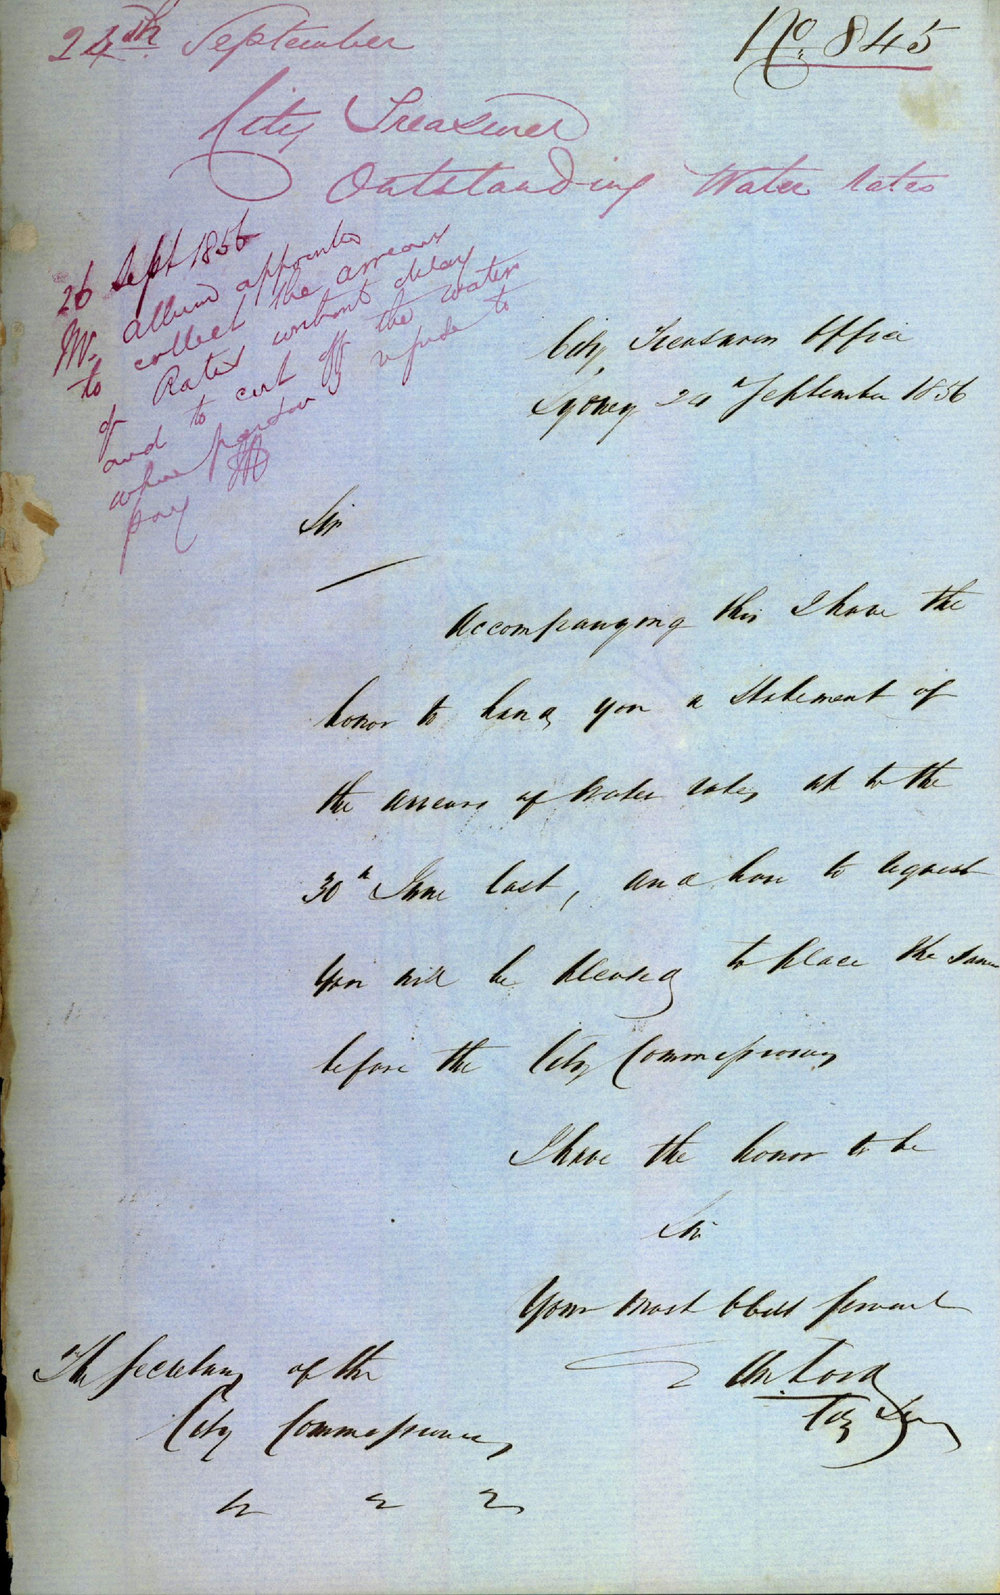 24th September
No. 845
City Treasurer
Outstanding Water rates
26 Sept 1856
Mr. Allum appointed
to collect the arrears
of Rates without delay
and to cut off the water
when parties refuse to
pay
City Treasurers Office
Sydney 24th September 1856
Sir
Accompanying this I have the
honor to hand you a Statement of
the arrears of Water rates up to the
30th June last, and have to request
you will be pleased to place the same
before the City Commissioners
I have the honor to be
Sir
Your Most Obedt Servant
City
The Secretary of the
City Commissioners